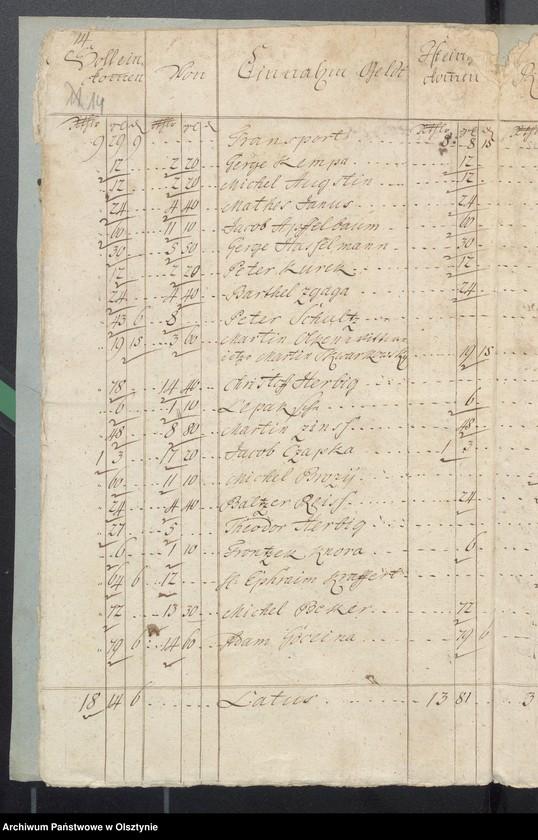 14.
Solleins kom̄en Von Einnahm Geldt Ist ein kom̄en
N. 14
9 29 9 Transport 8 8 15
12 2 20 Gerge Kempa 12
12 2 20 Michel Augstin 12
24 4 40 Mathes Janus 24
60 11 10 Jacob Apffelbaum 60
30 5 50 Gerge Hasselmann 30
12 2 20 Peter Kurek 12
24 4 40 Barthel Zgaga 24
43 6 8 Peter Schultz
19 15 3 60 Martin
Martin Skwarkowsky 19 15
78 14 40 Christoff Herbig
6 1 10 Lepak 6
48 8 80 Martin Zinss 48
1 3 17 20 Jacob Czapka 1 3
60 11 10 Michel Brozy
24 4 40 Baltzer Reiss 24
27 5 Theodor Herbig
6 1 10 Frontzek Knora 6
64 6 12 H. Ephraim Kraffert
72 13 30 Michel Beker 72
79 6 14 60 Adam 79 6
18 14 6 Latus 13 81
Archiwum Państwowe w Olsztynie